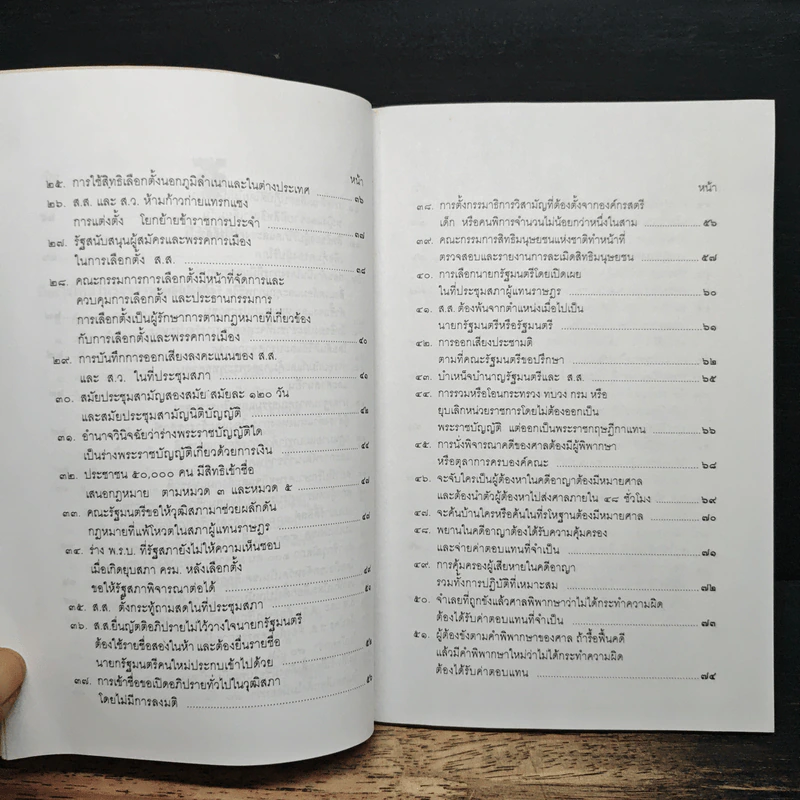 หน้า
๒๕. การใช้สิทธิเลือกตั้งนอกภูมิลำเนาและในต่างประเทศ ๓๖
๒๖. ส.ส. และ ส.ว. ห้ามก้าวก่ายแทรกแซง
การแต่งตั้ง โยกย้ายข้าราชการประจำ ๓๗
๒๗. รัฐสนับสนุนผู้สมัครและพรรคการเมือง
ในการเลือกตั้ง ส.ส. ๓๘
๒๘. คณะกรรมการการเลือกตั้งมีหน้าที่จัดการและ
ควบคุมการเลือกตั้ง และประธานกรรมการ
การเลือกตั้งเป็นผู้รักษาการตามกฎหมายที่เกี่ยวข้อง
กับการเลือกตั้งและพรรคการเมือง ๔๐
๒๙. การบันทึกการออกเสียงลงคะแนนของ ส.ส.
และ ส.ว. ในที่ประชุมสภา ๔๑
๓๐. สมัยประชุมสามัญสองสมัย สมัยละ ๑๒๐ วัน
และสมัยประชุมสามัญนิติบัญญัติ ๔๒
๓๑. อำนาจวินิจฉัยว่าร่างพระราชบัญญัติใด
เป็นร่างพระราชบัญญัติเกี่ยวด้วยการเงิน ๔๔
๓๒. ประชาชน ๕๐,๐๐๐ คน มีสิทธิเข้าชื่อ
เสนอกฎหมาย ตามหมวด ๓ และหมวด ๕
๓๓. คณะรัฐมนตรีขอให้วุฒิสภามาช่วยผลักดัน
กฎหมายที่แพ้โหวตในสภาผู้แทนราษฎร
๓๔. ร่าง พ.ร.บ. ที่รัฐสภายังไม่ให้ความเห็นชอบ
เมื่อเกิดยุบสภา ครม. หลังเลือกตั้ง
ขอให้รัฐสภาพิจารณาต่อได้
๓๕. ส.ส. ตั้งกระทู้ถามสดในที่ประชุมสภา
๓๖. ส.ส.ยื่นญัตติอภิปรายไม่ไว้วางใจนายกรัฐมนตรี
ต้องใช้รายชื่อสองในห้า และต้องยื่นรายชื่อ
นายกรัฐมนตรีคนใหม่ประกบเข้าไปด้วย
๓๗. การเข้าชื่อขอเปิดอภิปรายทั่วไปในวุฒิสภา
โดยไม่มีการลงมติ
หน้า
๓๘. การตั้งกรรมาธิการวิสามัญที่ต้องตั้งจากองค์กรสตรี
เด็ก หรือคนพิการจำนวนไม่น้อยกว่าหนึ่งในสาม ๕๖
๓๙. คณะกรรมการสิทธิมนุษยชนแห่งชาติทำหน้าที่
ตรวจสอบและรายงานการละเมิดสิทธิมนุษยชน ๕๗
๔๐. การเลือกนายกรัฐมนตรีโดยเปิดเผย
ในที่ประชุมสภาผู้แทนราษฎร ๖๐
๔๑. ส.ส. ต้องพ้นจากตำแหน่งเมื่อไปเป็น
นายกรัฐมนตรีหรือรัฐมนตรี ๖๑
๔๒. การออกเสียงประชามติ
ตามที่คณะรัฐมนตรีขอปรึกษา ๖๒
๔๓. บำเหน็จบำนาญรัฐมนตรีและ ส.ส. ๖๕
๔๔. การรวมหรือโอนกระทรวง ทบวง กรม หรือ
ยุบเลิกหน่วยราชการโดยไม่ต้องออกเป็น
พระราชบัญญัติ แต่ออกเป็นพระราชกฤษฎีกาแทน ๖๖
๔๕. การนั่งพิจารณาคดีของศาลต้องมีผู้พิพากษา
หรือตุลาการครบองค์คณะ ๖๘
๔๖. จะจับใครเป็นผู้ต้องหาในคดีอาญาต้องมีหมายศาล
และต้องนำตัวผู้ต้องหาไปส่งศาลภายใน ๔๘ ชั่วโมง ๖๙
๔๗. จะค้นบ้านใครหรือค้นในที่รโหฐานต้องมีหมายศาล ๗๐
๔๘. พยานในคดีอาญาต้องได้รับความคุ้มครอง
และจ่ายค่าตอบแทนที่จำเป็น ๗๑
๔๙. การคุ้มครองผู้เสียหายในคดีอาญา
รวมทั้งการปฏิบัติที่เหมาะสม ๗๒
๕๐. จำเลยที่ถูกขังแล้วศาลพิพากษาว่าไม่ได้กระทำความผิด
ต้องได้รับค่าตอบแทนที่จำเป็น ๗๓
๕๑. ผู้ต้องขังตามคำพิพากษาของศาล ถ้ารื้อฟื้นคดี
แล้วมีคำพิพากษาใหม่ว่าไม่ได้กระทำความผิด
ต้องได้รับค่าตอบแทน ๗๔